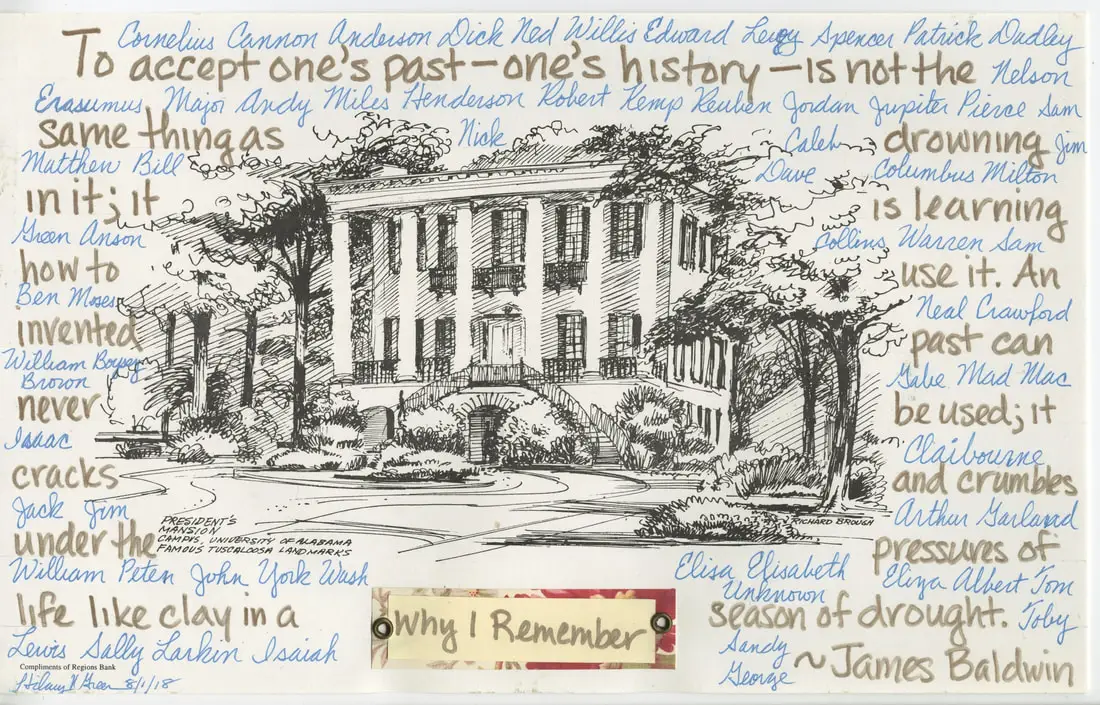 Cornelius Cannon Anderson Dick Ned Willis Edward Levy Spencer Patrick Dudley
To accept one's past—one's history—is not the
Nelson
Erasumus Major Andy Miles Henderson Robert Kemp Reuben Jordan Jupiter Pierce Sam
same thing as
Nick
Caleb
drowning
Jim
Matthew Bill
Dave
Columbus Milton
in it; it
is learning
Green Anson
Collins Warren Sam
how to
use it. An
Ben Moses
Neal Crawford
invented
past can
William Boysey
Brown
Gabe Mad Mac
never
be used; it
Isaac
Claibourne
cracks
and crumbles
Jack Jim
Arthur Garland
PRESIDENT'S
MANSION
CAMPUS, UNIVERSITY OF ALABAMA
FAMOUS TUSCALOOSA LANDMARKS
RICHARD BROUGH
under the
pressures of
William Peter John York Wash
Elisa Elisabeth
Unknown
Eliza Albert Tom
life like clay in a
season of drought.
Toby
Why I Remember
Lewis Sally Larkin Isaiah
Sandy
George
~James Baldwin
Compliments of Regions Bank
Hilary N Green 8/1/18